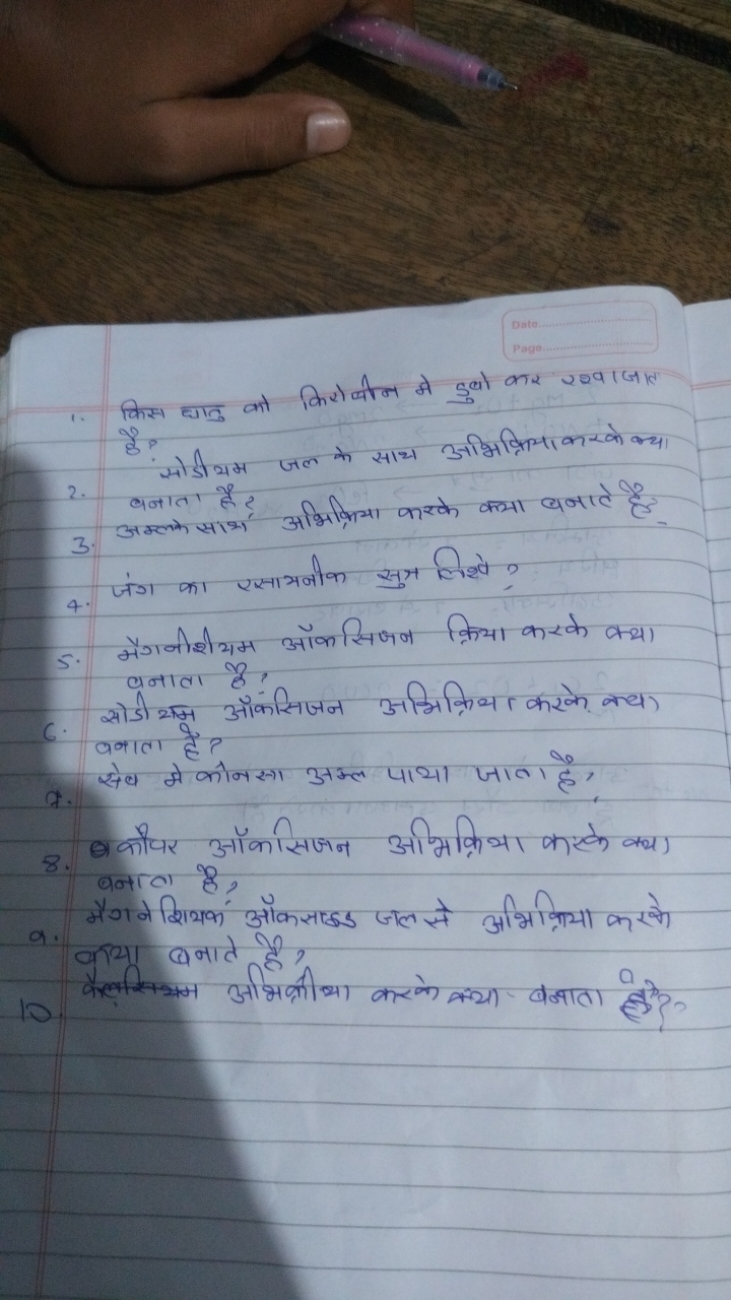 Date
Page
1. किस धातु को किरोसीन मे डुबो कर रखा जात
है?
2. सोडीयम जल के साथ अभिक्रिया करके क्या
बनाता है?
3. अम्लके साथ अभिक्रिया करके क्या बनाते है?
4. जंग का रसायनीक सुत्र लिखे?
5. मैगनीशीयम ऑकसिजन क्रिया करके क्या
बनाता है?
6. सोडीयम ऑकसिजन अभिक्रिया करके क्या
बनाता है?
7. सेव मे कौनसा अम्ल पाया जाता है?
8. कौपर ऑकसिजन अभिक्रिया करके क्या
बनाता है?
9. मैगनेशियक ऑकसाइड जल से अभिक्रिया करके
क्या बनाते है?
10 कैलसियम अभिक्रीया करके क्या बनाता है?